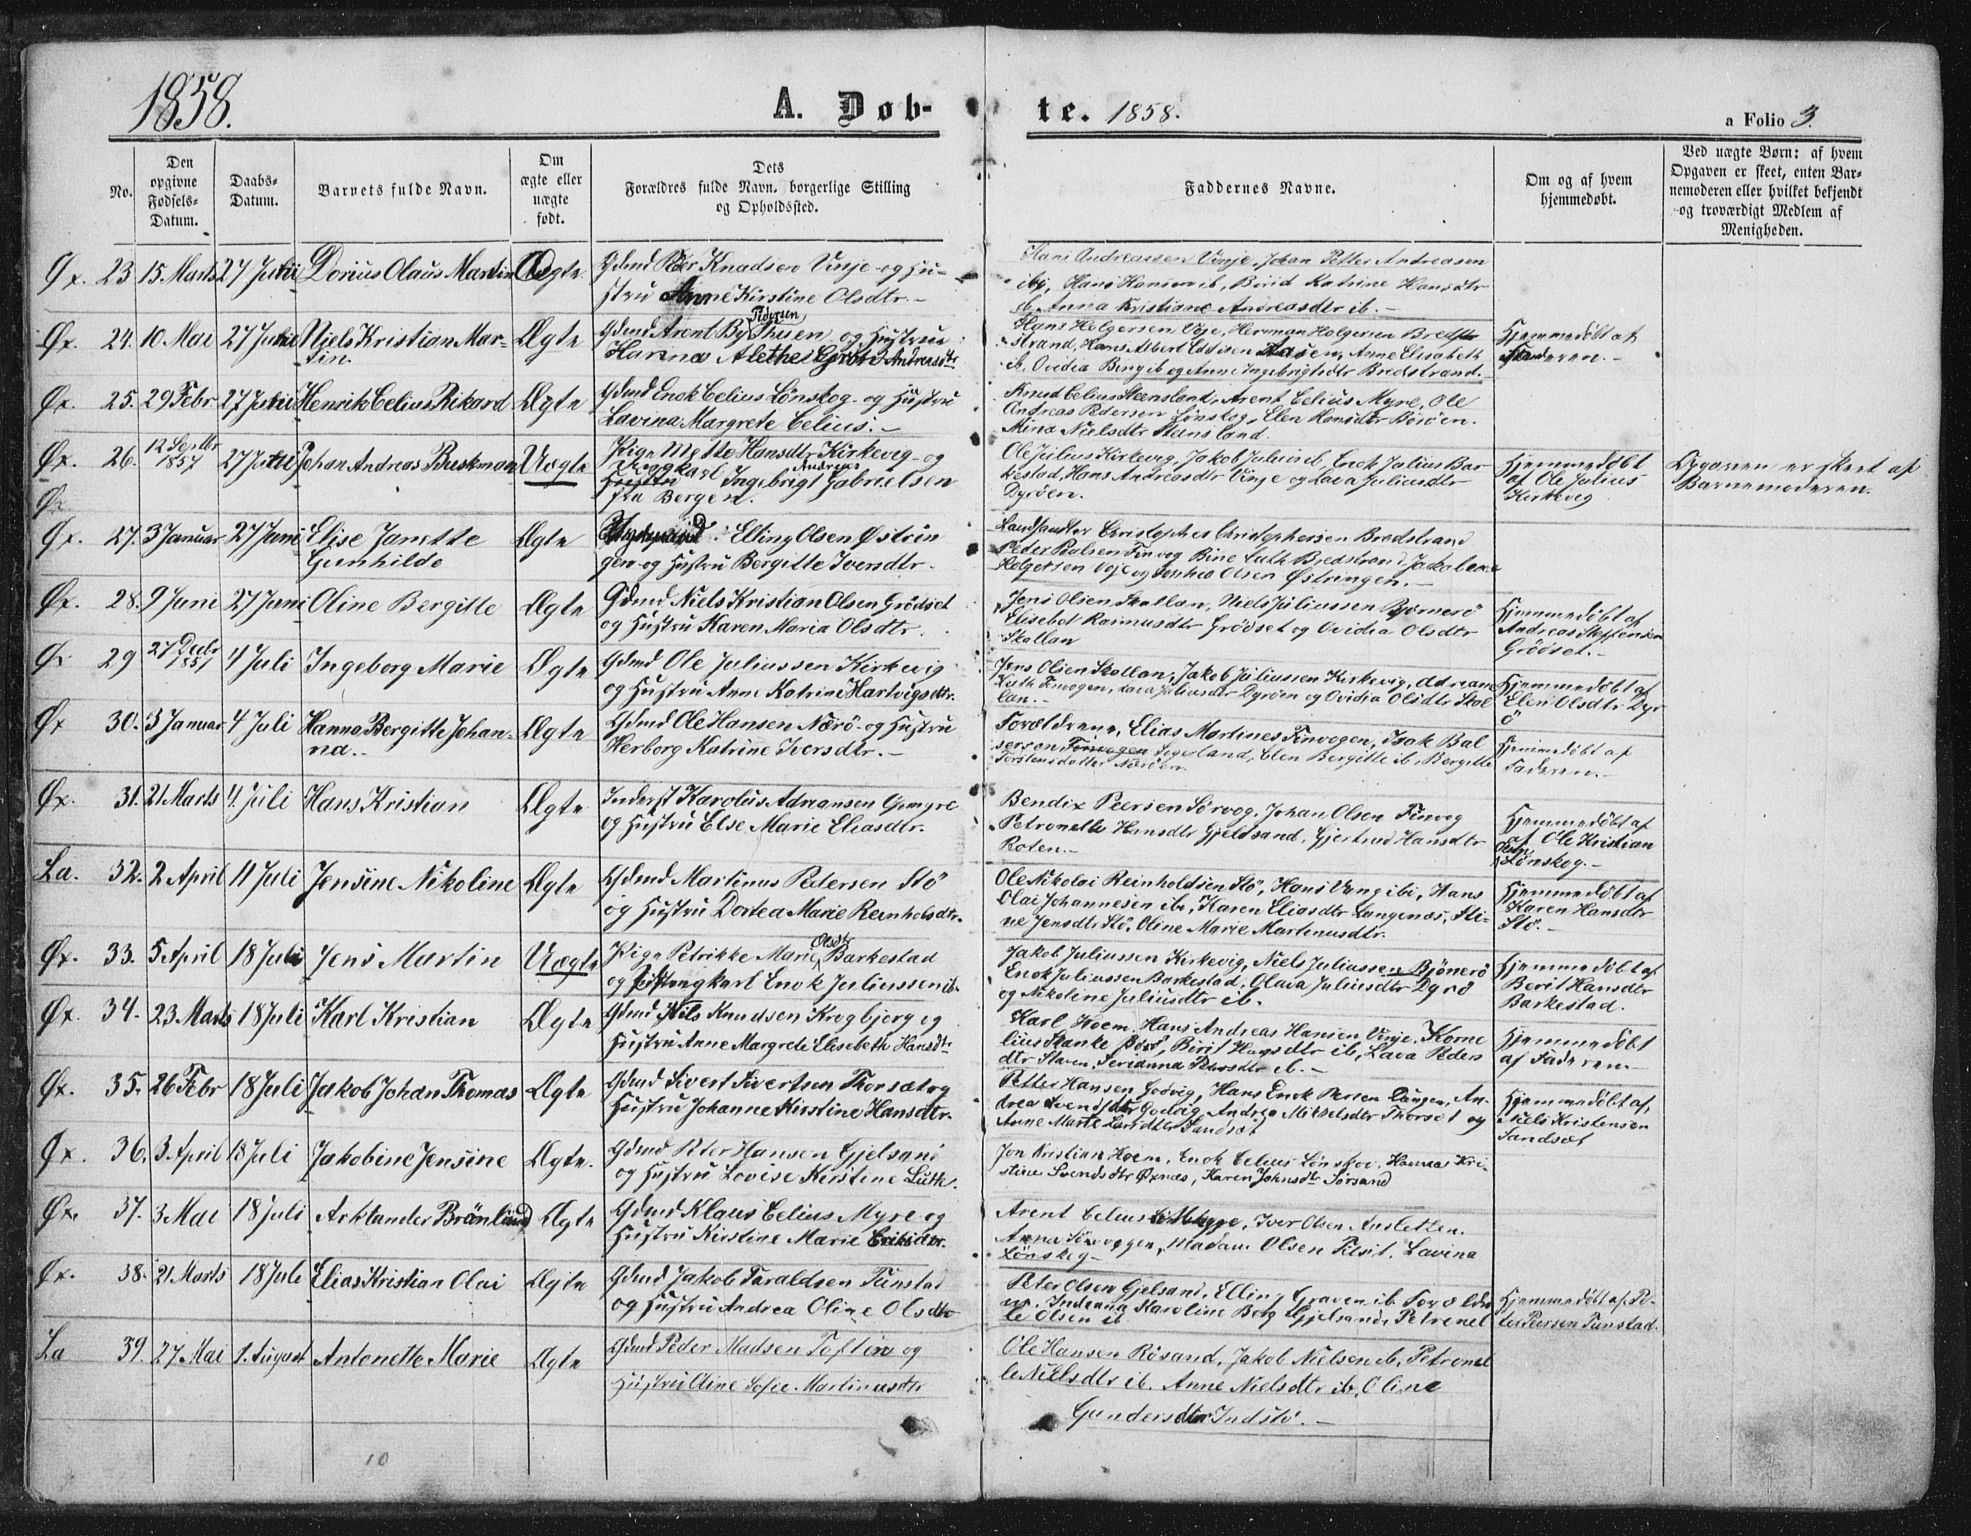 1858.
A. Døb-
te. 1858.
a Folio 3.
No.
Den opgivne Fødsels-Datum.
Daabs-Datum.
Barnets fulde Navn.
Om ægte eller uægte født.
Dets Forældres fulde Navn, borgerlige Stilling og Opholdssted.
Faddernes Navne.
Om og af hvem hjemmedøbt.
Ved uægte Børn: af hvem Opgaven er skeet, enten Barnemoderen eller hvilket bekjendt og troværdigt Medlem af Menigheden.
Øx. 23. 15 Marts 27 Juni Dorius Olaus Martin Ægte. Gdmd Peder Knudsen Vinje og Hu-
stru Anne Kirstine Olsdtr.
Hans Andreassen Vinje, Johan Petter Andreasen
ibi, Hans Hansen ib, Berid Katrine Hansdtr
ib, Anna Kristiane Andreasdtr ib.
Øx. 24. 10 Mai 27 Juni Niels Kristian Mar-
tin. Ægte Gdmd Arent By Pedersen og Hustru
Hanna Alethe Andreasdtr
Hans Holgersen Voje, Herman Holgersen Bred-
strand, Hans Albert, Anne Elisabeth
ib, Ovidia Bing ib og Anne Ingebrigtsdtr Bredstrand.
Hjemmedøbt af
Faderen.
Øx. 25. 29 Febr 27 Juni Henrik Celius Rikard Ægte Gdmd Enok Celius Lønskog og Hustru
Lavina Margrete Celius.
Knud Celius Steensland, Arent Celius Myre, Ole
Andreas Pedersen Lønskog, Elen Hansdtr
Mina Nielsdtr
Øx. 26. 12 Septbr
1857 27 Juni Johan Andreas Buskman Uægte Pige Mette Hansdtr Kirkevig og
Ungkarl Ingebrigt Andreas Gabrielsen
fra Bergen.
Ole Julius Kirkevig, Jakob Julius ib, Enok Julius Bar-
kestad, Hans Andreasdtr Vinje og Lava Juliusdtr
Dyröen.
Hjemmedøbt
af Ole Julius
Kirkevig
Opgaven er skeet af
Barnemoderen.
Øx.
Øx. 27. 3 Januar 27 Juni Elise Janette
Gunhilde Ægte Elling Olsen Østrin
gen og Hustru Bergitte Iversdtr.
Landhandler Christopher Christophersen Bredstrand
Peter Paulsen Finvog Bine Luth Bredstrand, Jakobine
Holgersen Voje og Olsen Østringen.
Øx. 28. 9 Juni 27 Juni Oline Bergitte Ægte Gdmd Niels Kristian Olsen Grödset
og Hustru Karen Maria Olsdtr.
Jens Olsen Skallan, Niels Juliussen Bjørnerö
Elisebet Rasmusdtr Grödset og Ovidia Olsdtr
Skallan
Hjemmedøbt af
Andreas
Grödset.
Øx 29 27 Decbr
1857 4 Juli Ingeborg Marie Ægte Gdmd Ole Juliussen Kirkevig
og Hustru Anne Katrine Hartvigsdtr.
Jens Olsen Skallan, Jakob Juliussen Kirkevig, Adriane
Luth Finvogen, Lava Juliusdtr Dyröen og Ovidia Olsdtr Skal
lan.
Hjemmedøbt af
Elen Olsdtr Dyr
ö
Øx 30. 3 Januar 4 Juli Hanna Bergitte Johan-
na. Ægte Gdmd Ole Hansen Nærö og Hustru
Herborg Katrine Iversdtr.
Forældrene, Elias Martines Finvogen, Isak Bal
sersen Finvogen Sigerland, Elen Bergitte ib, Bergitte
Torstensdatter Næröen.
Hjemmedøbt af
Faderen.
Øx. 31. 21 Marts 4 Juli Hans Kristian Ægte Inderst Karolus Adreansen Gjemyre
og Hustru Else Marie Eliasdtr.
Bendix Peersen Sörvog, Johan Olsen Finvog
Petronelle Hansdtr Gjeldsand, Gjertrud Hansdtr
Roten.
Hjemmedøbt af
af Ole Kristian
Lönskog.
La. 32. 2 April 11 Juli Jensine Nikoline Ægte Gdmd Martinus Petersen Stö
og Hustru Dortea Marie Reinholdsdtr.
Ole Nikolai Reinholdsen Stö, Hans Vang ibi, Hans
Olai Johannesen ib, Karen Eliasdtr Langenæs, Sti-
ne Jensdtr Stö, Oline Marie Martinusdtr.
Hjemmedøbt af
Karen Hansdtr
Stö.
Øx. 33. 5 April 18 Juli Jens Martin Uægte Pige Petrikke Marie Olsdtr Barkestad
og Ungkarl Enok Juliussen ib.
Jakob Juliussen Kirkevig, Niels Juliussen Bjönerö
Enok Juliussen Barkestad, Olava Juliusdtr Dyrö
og Nikoline Juliusdtr ib.
Hjemmedøbt af
Berit Hansdtr
Barkestad.
Øx. 34. 23 Marts 18 Juli Karl Kristian Ægte Gdmd Nils Knudsen Krogbjerg og
Hustru Anne Margrete Elisebeth Hansdtr
Karl Hoem, Hans Andreas Hansen Vinje, Korne
lius Hanke Börö, Birit Hansdtr ib, Lava Peders
dtr Staven, Serianna Pedersdtr ib.
Hjemmedøbt
af Faderen.
Øx. 35. 26 Febr 18 Juli Jakob Johan Thomas Ægte Gdmd Sivert Sivertsen Thorsæt og
Hustru Johanne Kirstine Hansdtr.
Petter Hansen Godvig, Hans Enok Persen Langen, An-
drea Svendsdtr Godvig, Andrea Mikkelsdtr Thorset og
Anne Marte Larsdtr Sandsæt
Hjemmedøbt af,
Niels Kristensen
Sandsæt
Øx. 36. 3 April 18 Juli Jakobine Jensine Ægte. Gdmd Peter Hansen Gjelsand
og Hustru Lovise Kirstine Luth.
Jon Kristian Hoem, Enok Celius Lönskog, Hannas Kri-
stine Svendsdtr Øxnæs, Karen Johnsdtr Sörsand
Øx. 37. 3 Mai 18 Juli Arklander Brönlund Ægte Gdmd Klaus Celius Myre og
Hustru Kirstine Marie Eriksdtr.
Arent Celius, Iver Olsen Ansletten.
Anna Sörvogen, Madam Olsen Tilsit. Lavina
Lönskog
Øx. 38. 21 Marts 18 Juli Elias Kristian Olai Ægte Gdmd Jakob Taraldsen Tunstad
og Hustru Andrea Oline Olsdtr
Peter Olsen Gjelsand, Elling Graven ib. Foræld
Indeanna Karoline Borg Gjelsand, Petronel
le Olsen ib
Hjemmedøbt af Pe-
ter Peersen Tunstad.
La 39. 27 Mai 1. August Antonette Marie Ægte Gdmd Peder Madsen Toften og
Hustru Oline Sofie Martinusdtr
Ole Hansen Rösand, Jakob Nielsen ib, Petronel
le Nielsdtr ib, Anne Nielsdtr ib, Oline
Gundersdtr Indstö.
10